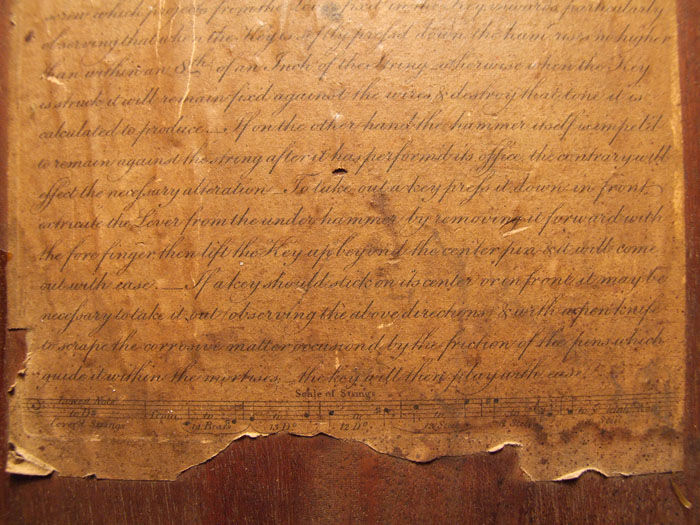 screw which projects from the fixed in the Key is wards particularly
observing that when the Key is softly press'd down the ham rises no higher
than within an 8th of an Inch of the String otherwise when the Key
is struck it will remain fixd against the wires & destroy that tone it is
calculated to produce. If on the other hand the hammer itself is impell'd
to remain against the string after it has perform'd its office, the contrary will
effect the necessary alteration To take out a key press it down in front
extricate the Lever from the under hammer by removing it forward with
the fore finger then lift the Key up beyond the center pin & it will come
out with ease. If a key should stick on its center or in front it may be
necessary to take it out (observing the above directions) & with a penknife
to scrape the corrosive matter occasiond by the friction of the pens which
guide it within the mortises, the key will then play with ease.
Scale of Strings
Note
to Do
Cover'd Strings
From
to
14 Brass
to
13 Do
7
to
12 Do
to
to
to
Steel